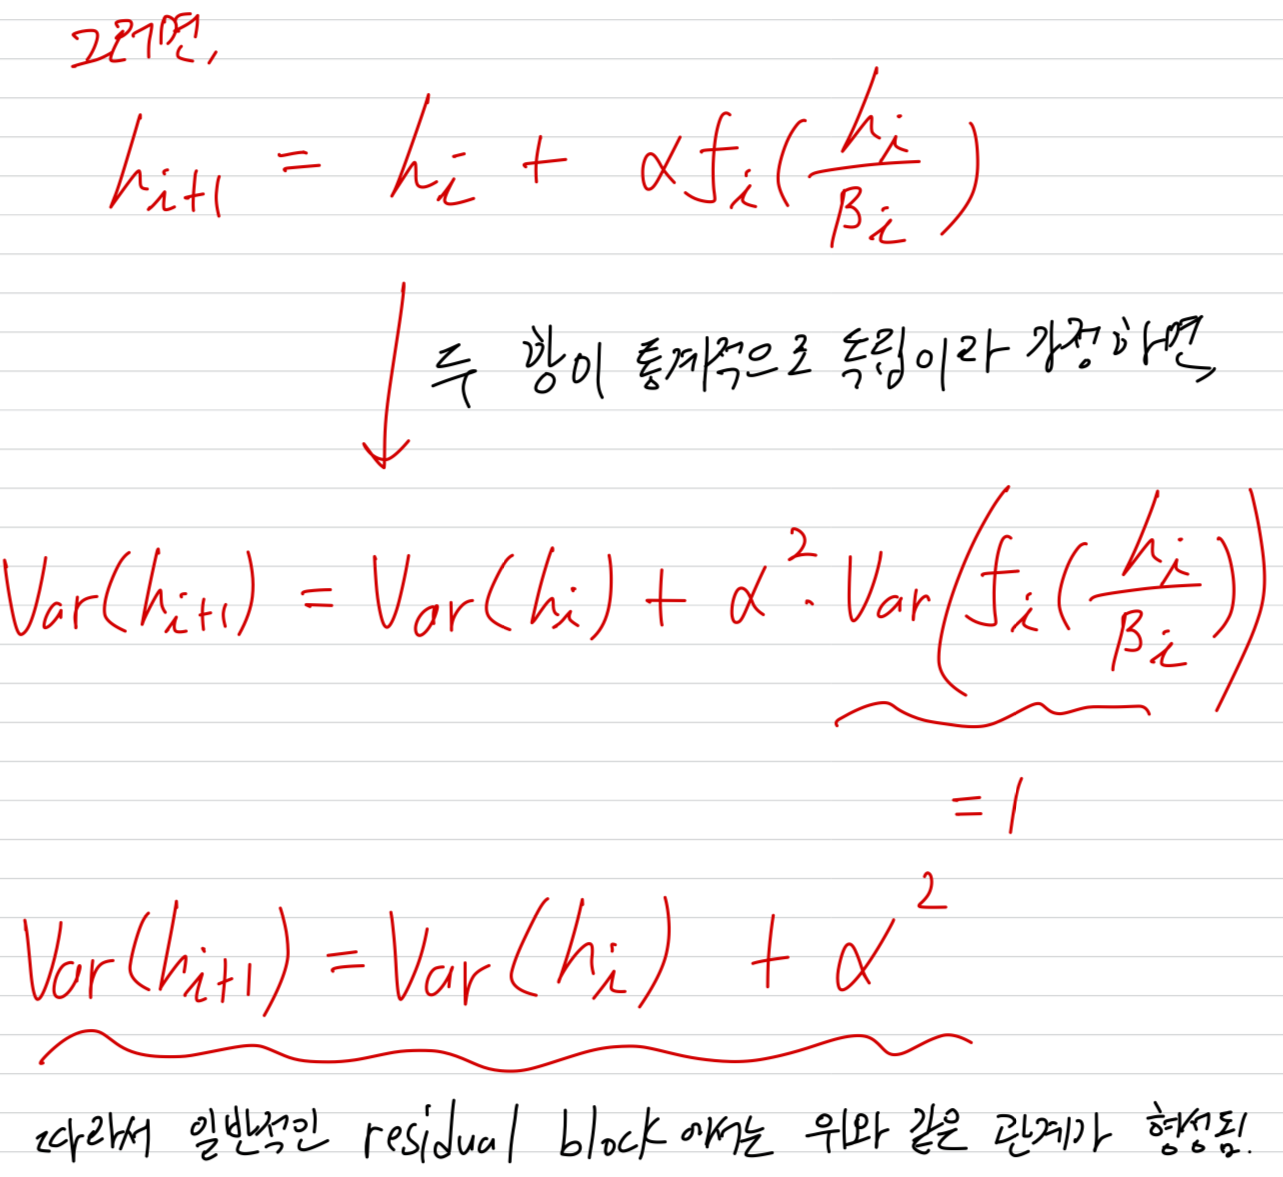 그러면,
h_{i+1} = h_i + α f_i(h_i / β_i)
두 항이 통계적으로 독립이라 가정하면,
Var(h_{i+1}) = Var(h_i) + α^2 · Var(f_i(h_i / β_i))
= 1
Var(h_{i+1}) = Var(h_i) + α^2
따라서 일반적인 residual block에서는 위와 같은 관계가 형성됨.